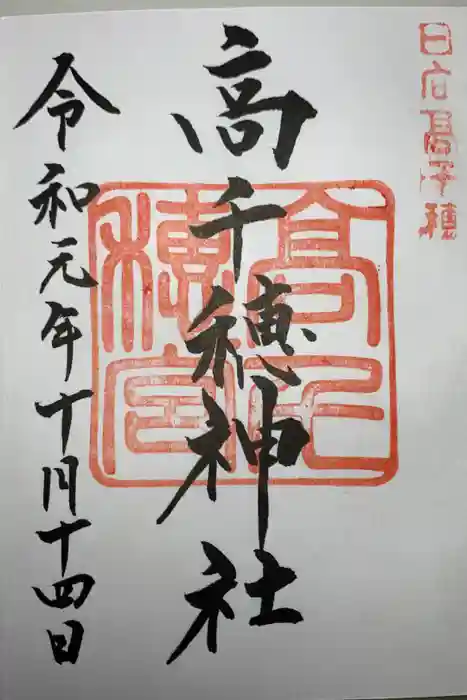 日向高千穂
高千穂神社
高千穂宮
令和元年十月十四日